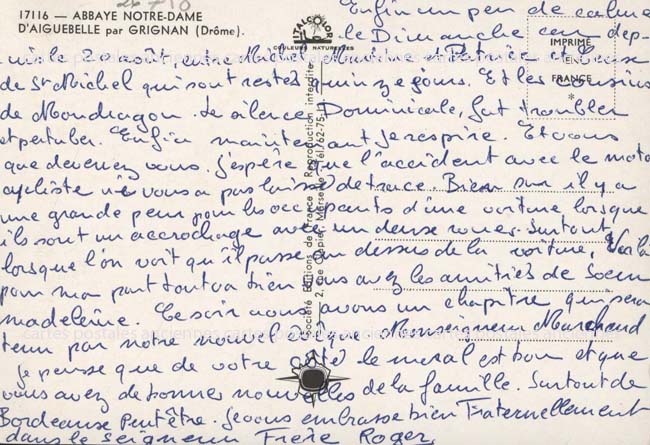 26710
17116 — ABBAYE NOTRE-DAME
D'AIGUEBELLE par GRIGNAN (Drôme).
ITALCOLOR
COULEURS NATURELLES
IMPRIMÉ
EN
FRANCE
*
Société Editions de France - Reproduction interdite
2, rue Crapier, Marseille - Tél. 62-75
Enfin un peu de calme
le Dimanche car dep-
uis le 2 août entre Michel Maurice et Patricia et
de St Michel qui sont restés quinze jours. Et les cousins
de Mondragon. Le silence Dominicale, fut troubler
et pertuber. Enfin maintenant je respire. Et vous
que devenez vous. j'espère que l'accident avec le moto
cycliste ne vous a pas laissé de trace. Bien sur il y a
une grande peur pour les occupants d'une voiture lorsque
ils sont un accrochage avec un deuse roues. Surtout
lorsque l'on voit qu'il passe au dessus de la voiture, Voilà
pour ma part tout va bien vous avez les amitiés de Soeur
madeleine. Ce soir nous avons un chapitre qui sera
tenu par notre nouvel évêque Monseigneur Marchand
je pense que de votre côté le moral est bon et que
vous avez de bonnes nouvelles de la famille. Surtout de
Bordeause peut être. Je vous embrasse bien Fraternellement
dans le Seigneur Frère Roger
cartes postales anciennes